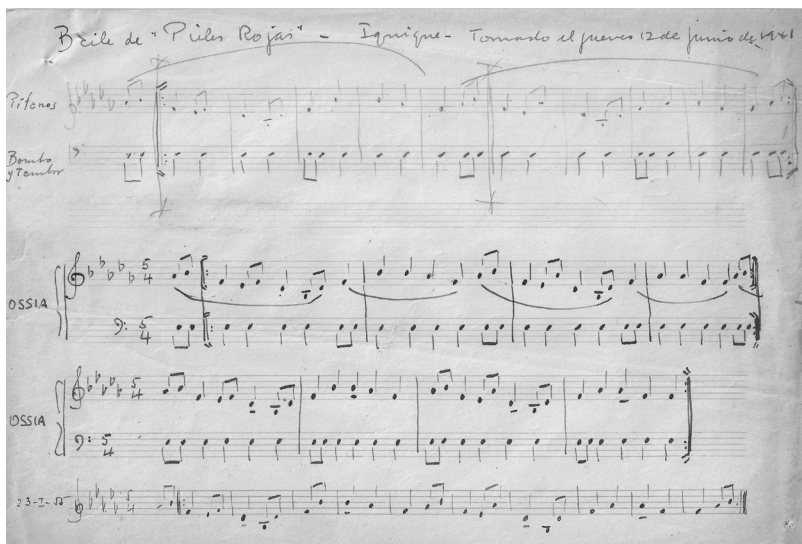 Baile de "Pieles Rojas" - Iquique - Tomado el jueves 12 de junio de 1941
Pífanos
Bombo
y Tambor
OSSIA
5
4
5
4
OSSIA
5
4
5
4
23-I-55